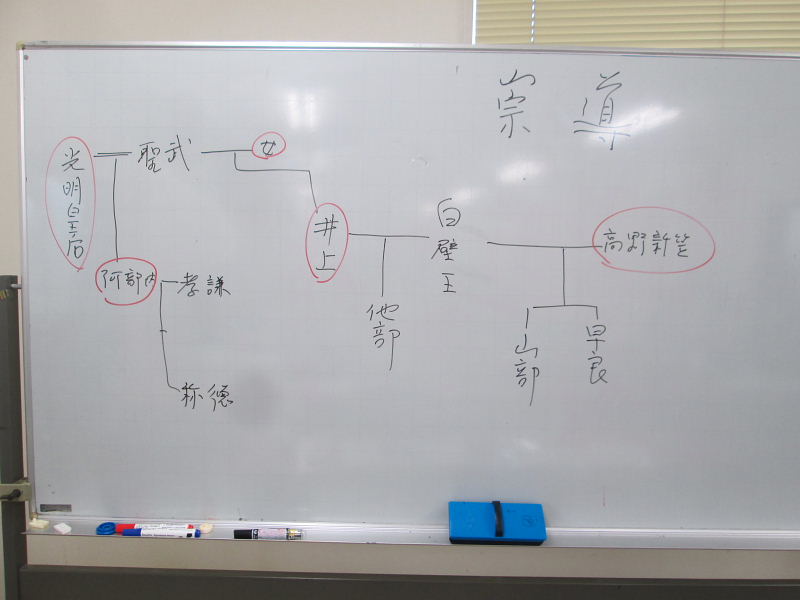 崇導
光明皇后
聖武
女
阿部内
孝謙
称徳
井上
白壁王
他部
高野新笠
山部
早良